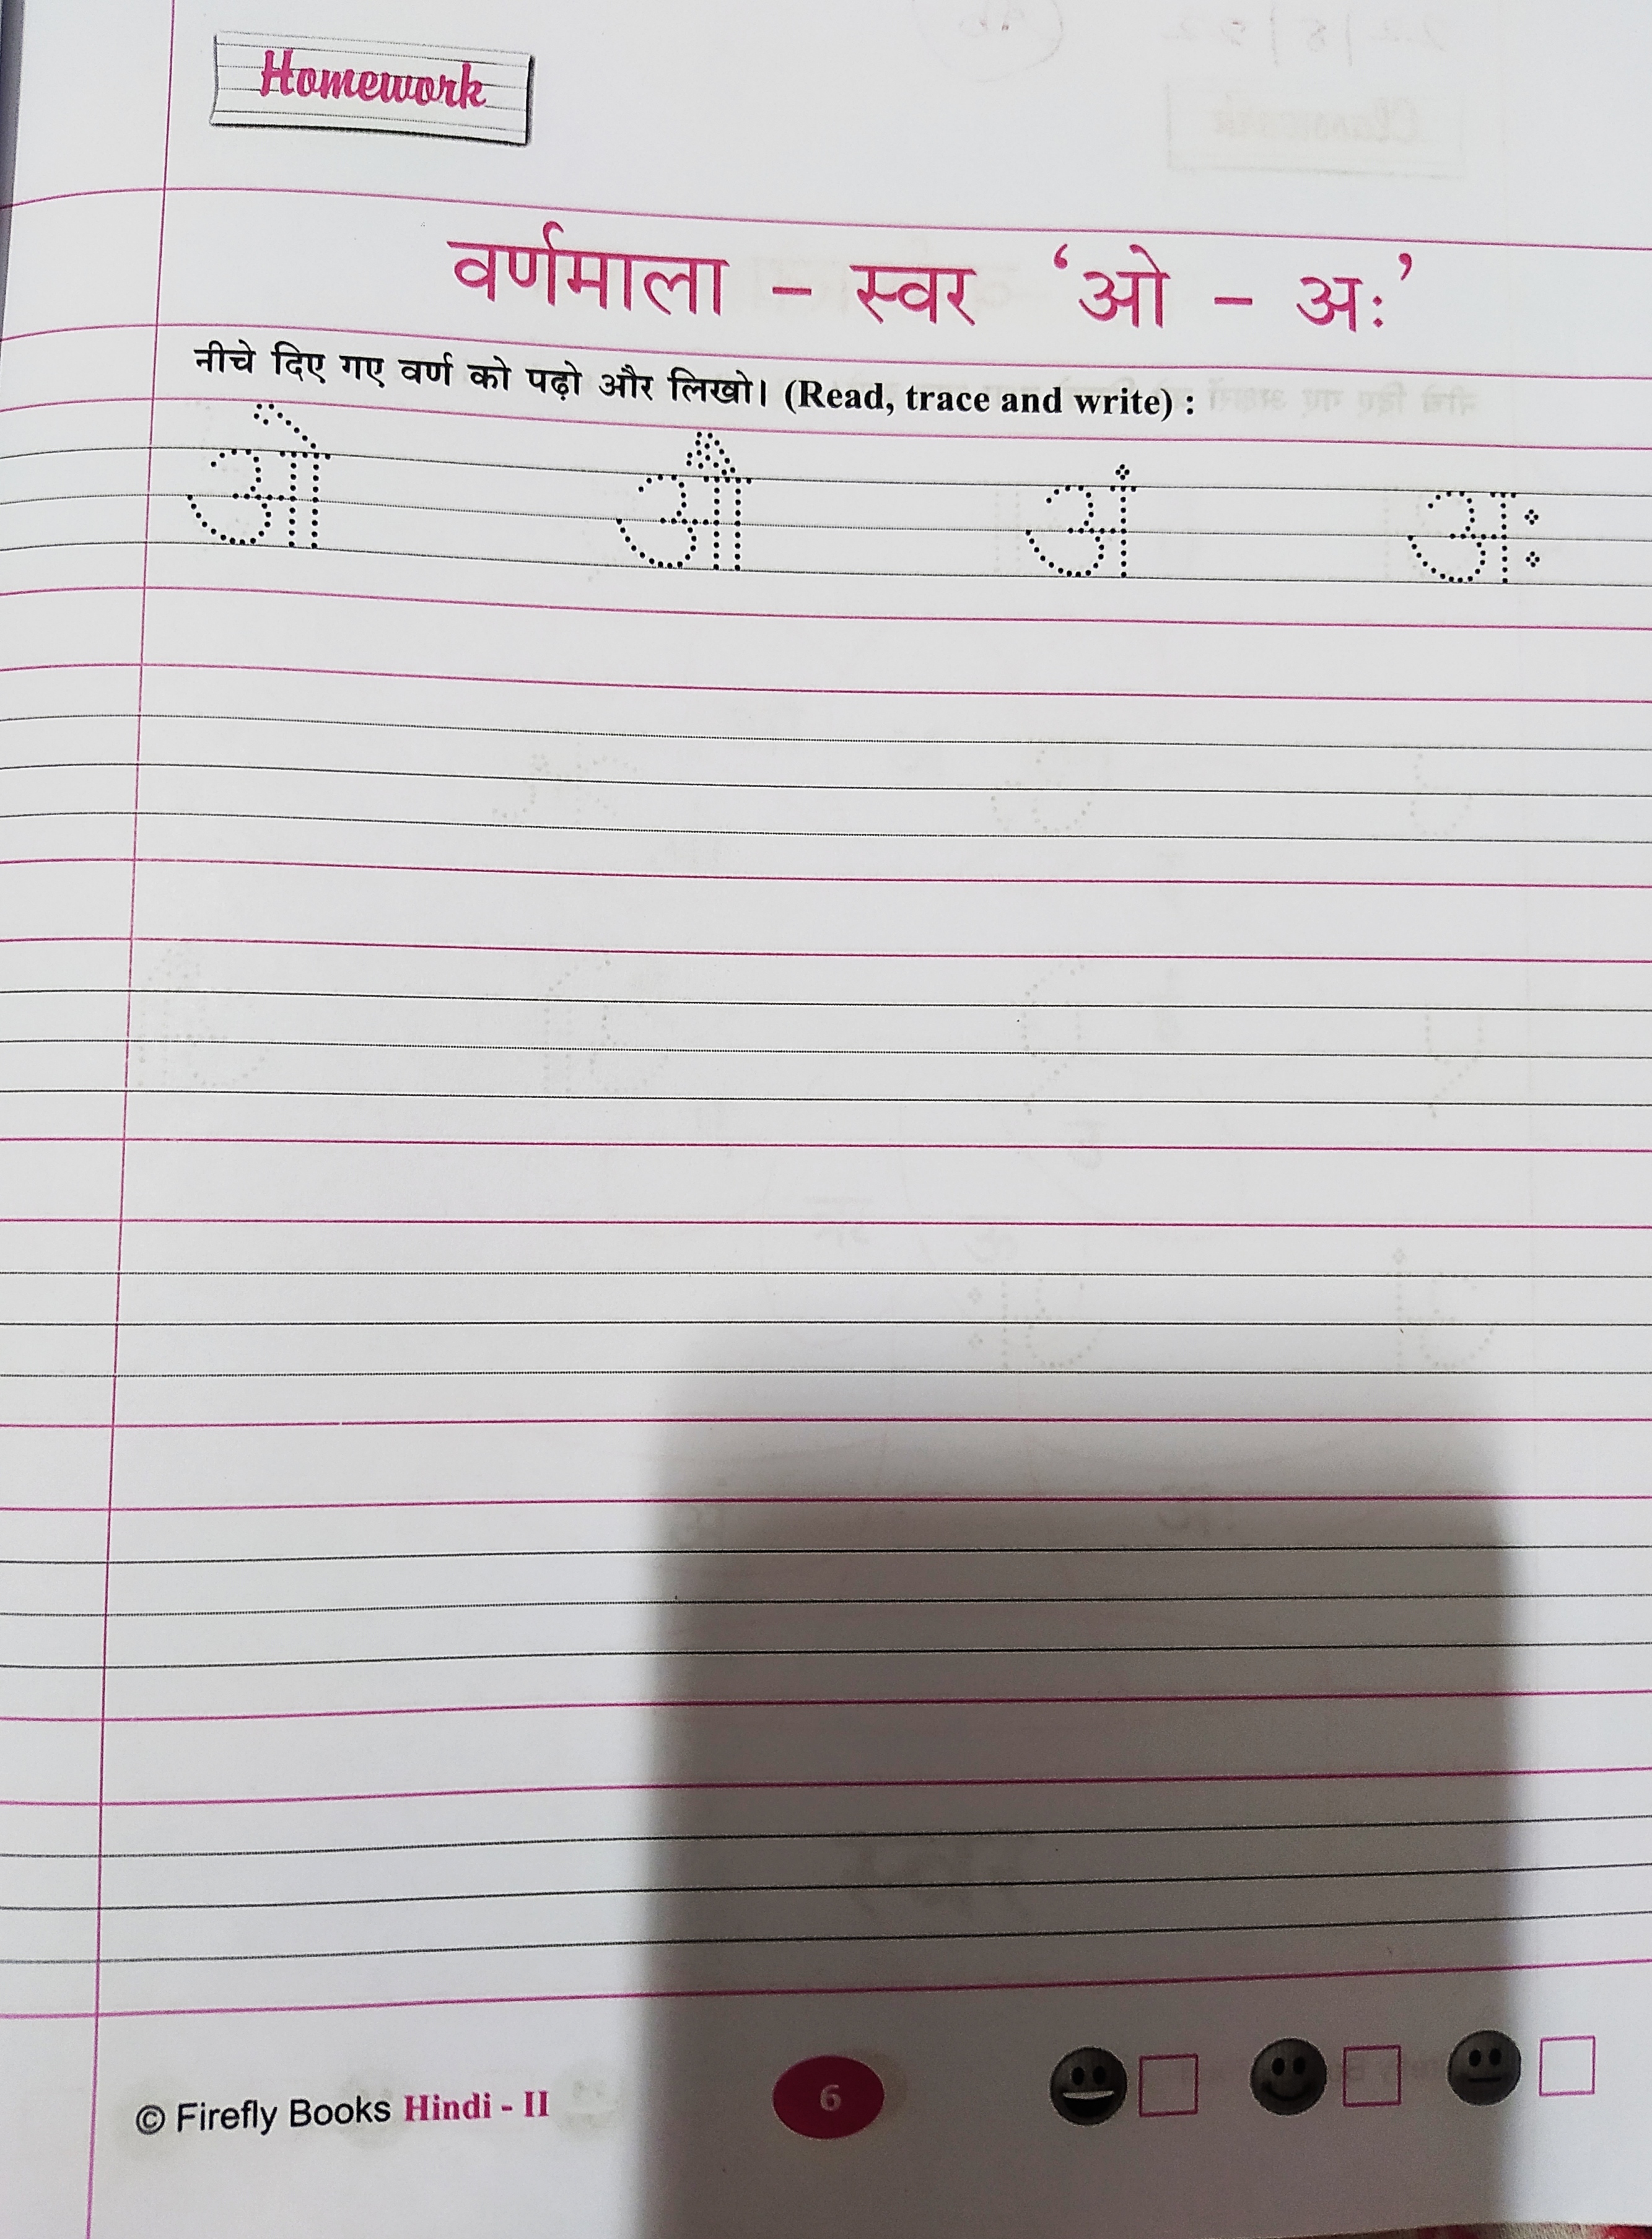 Homework
वर्णमाला – स्वर ‘ओ – अः’
नीचे दिए गए वर्ण को पढ़ो और लिखो। (Read, trace and write) :
ओ औ अं अः
© Firefly Books Hindi - II
6